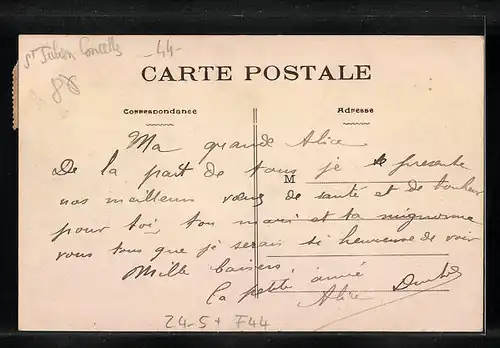 St Julien Concelles -44-
80
CARTE POSTALE
Correspondance
Adresse
Ma grande Alice
De la part de tous je te presente
M
nos meilleurs vœux de santé et de bonheur
pour toi, ton mari et ta mignonne
vous tous que je serais si heureuse de voir
Mille baisers
Ta petite amie
Alice
24-5 + F44